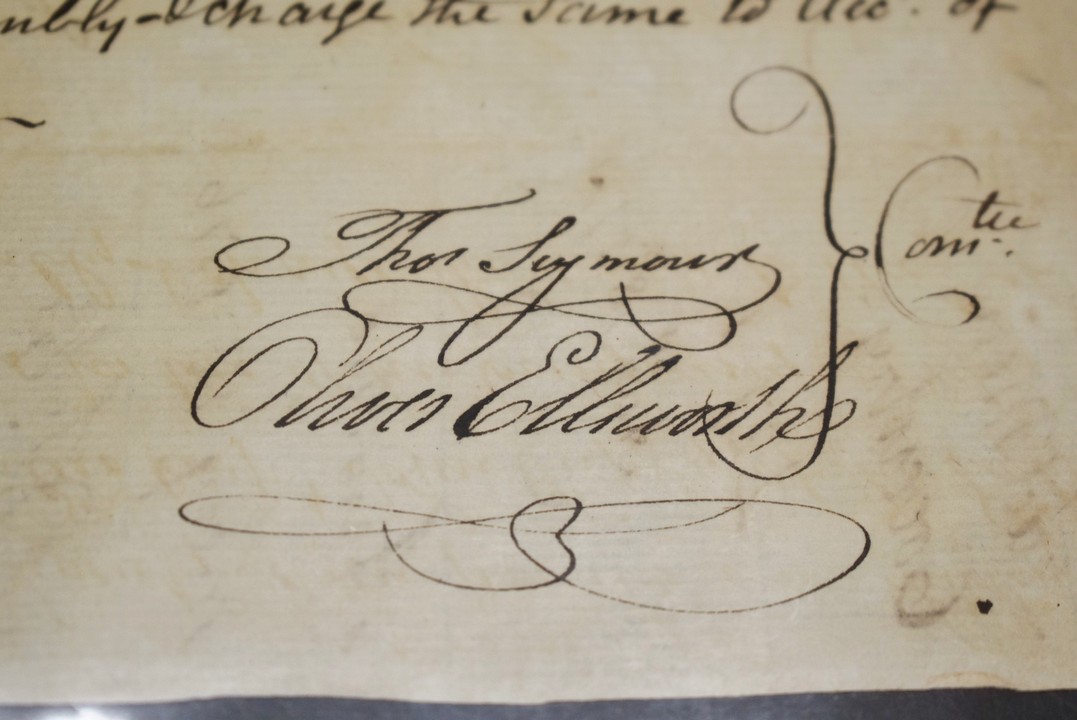 charge the same to Acc. of
Thos Seymour
Oliver Ellsworth
Comtee.